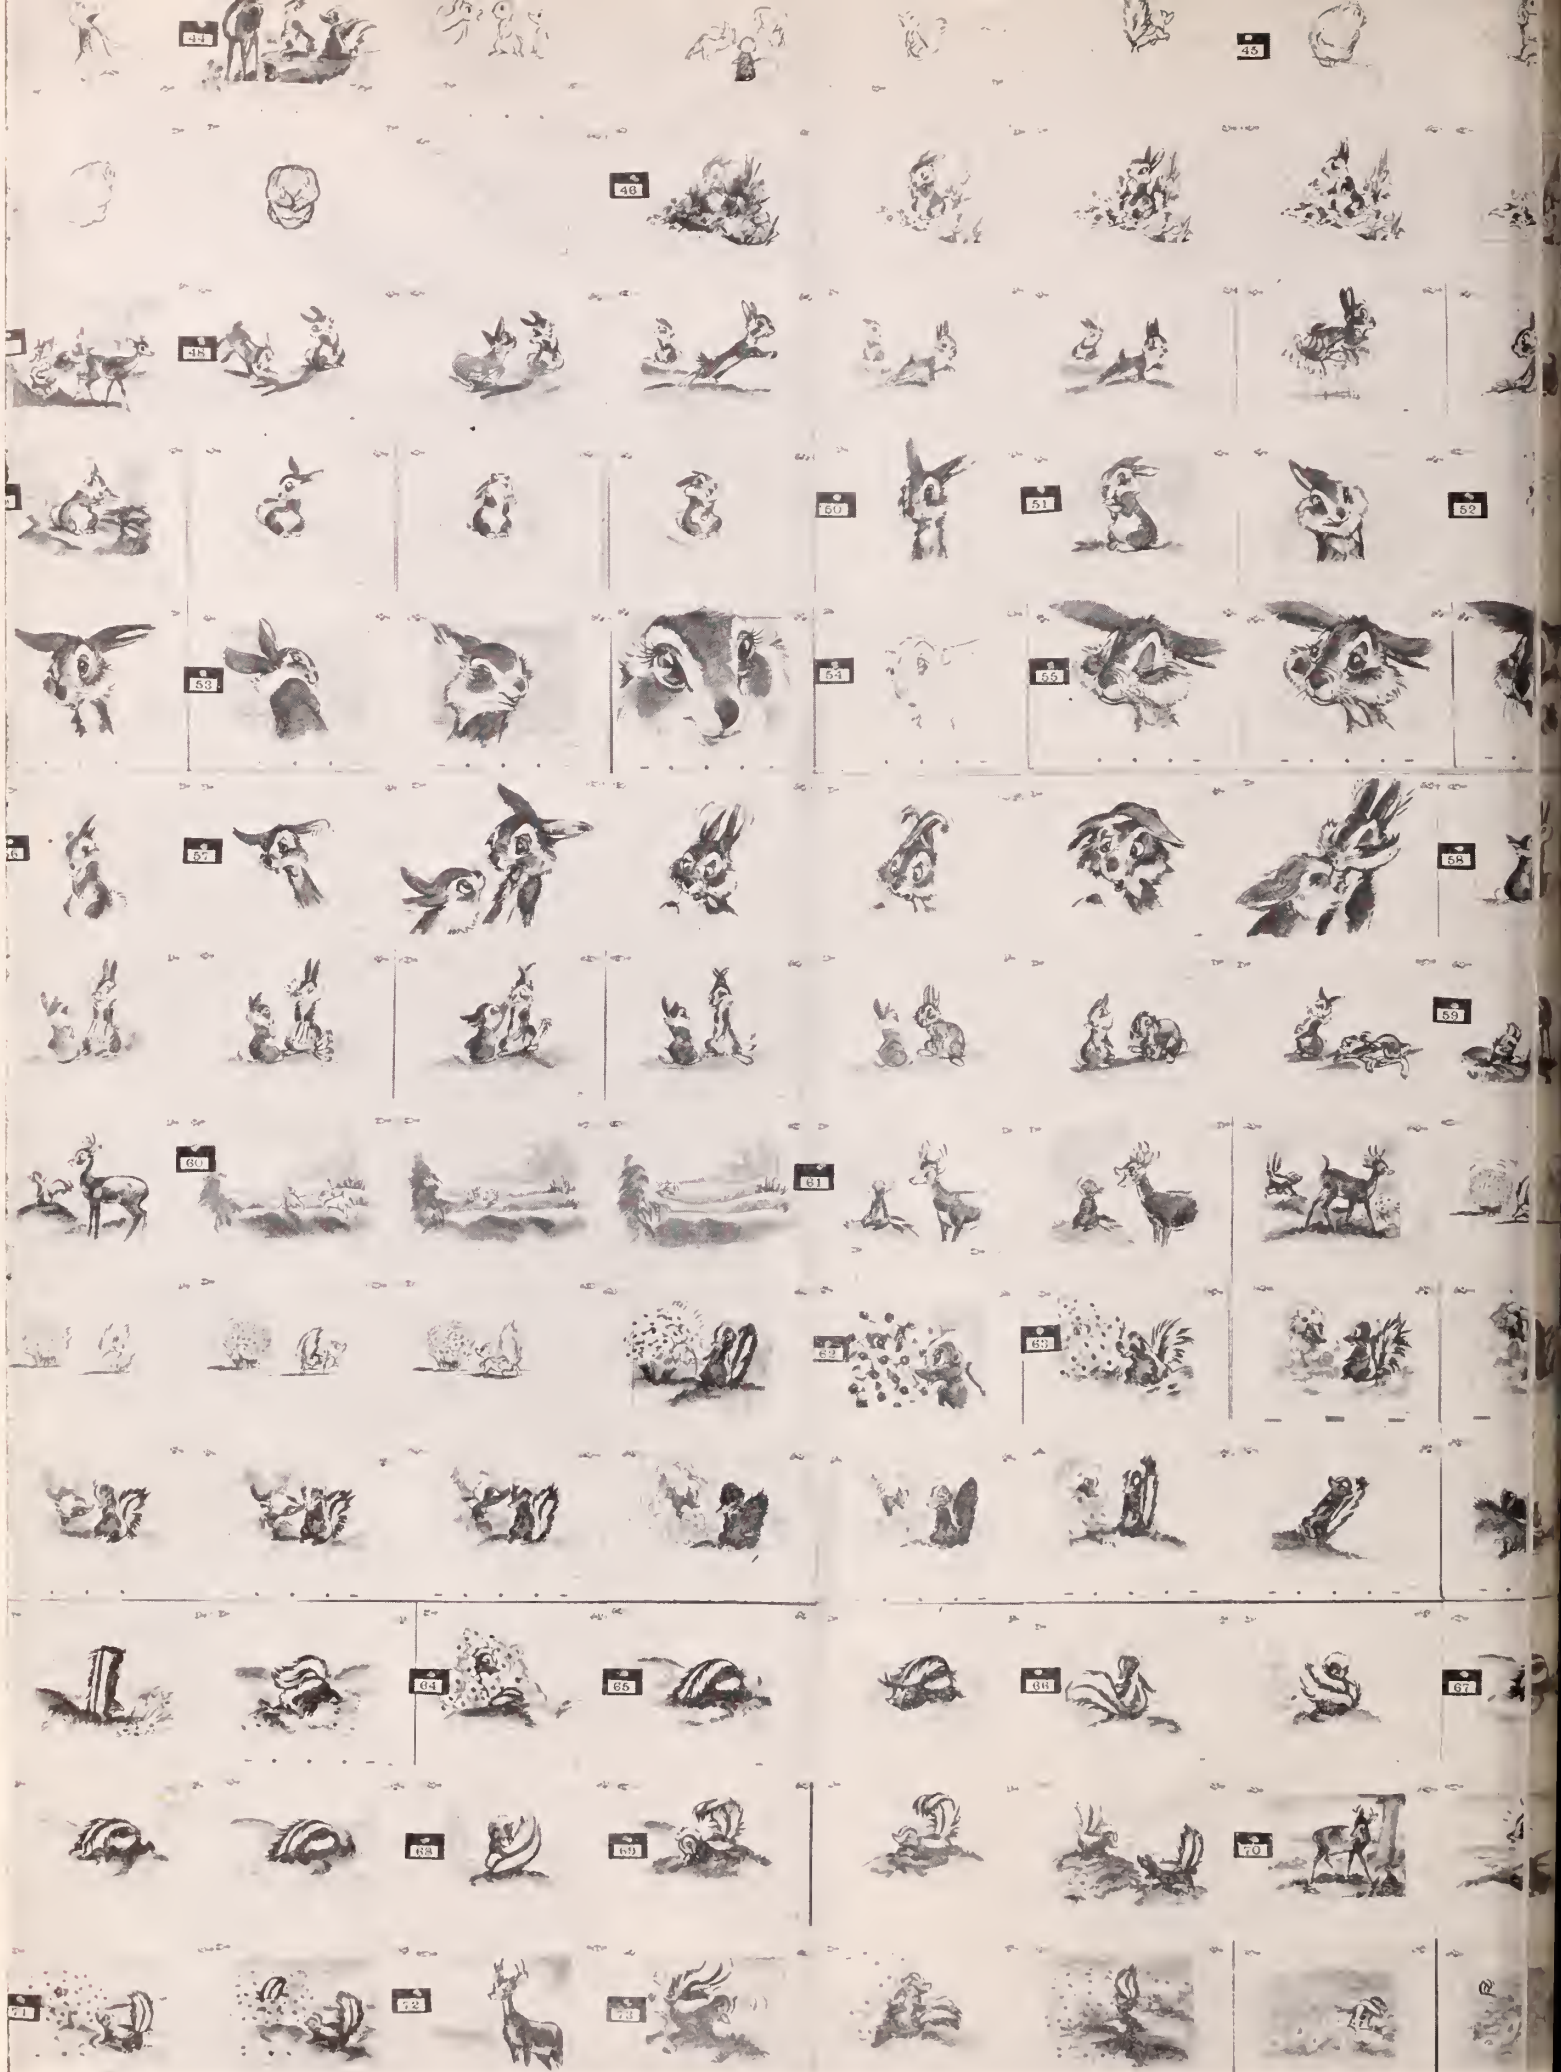 44
45
46
48
50
51
52
53
54
55
57
58
59
60
61
62
63
64
65
66
67
68
69
70
71
72
73